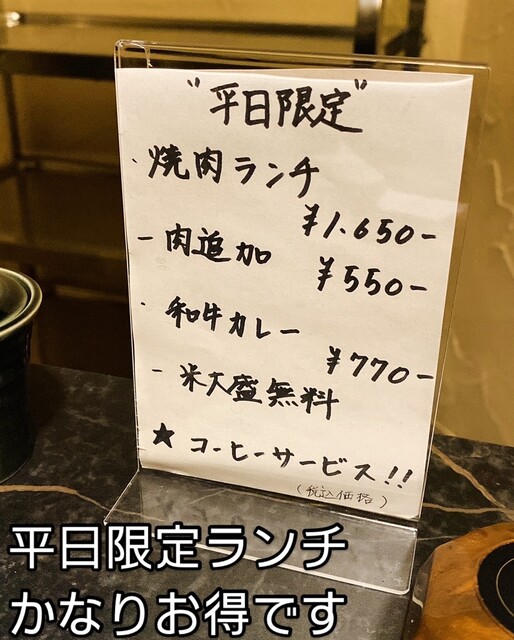 "平日限定"
・焼肉ランチ
¥1.650-
-肉追加
¥550-
・和牛カレー
¥770-
-米大盛無料
★コーヒーサービス!!
(税込価格)
平日限定ランチ
かなりお得です